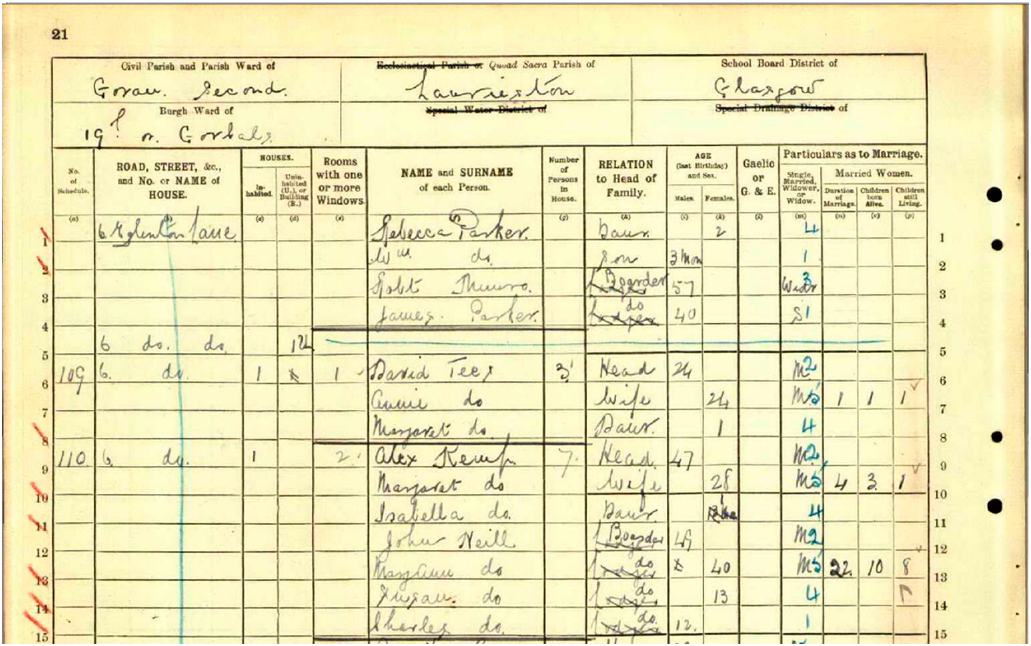 21
Civil Parish and Parish Ward of
Govan. Second.
Burgh Ward of
19 or Gorbals
Ecclesiastical Parish or Quoad Sacra Parish of
Laurieston
Special Water District of
School Board District of
Glasgow
Special Drainage District of
No. of Schedule. ROAD, STREET, &c., and No. or NAME of HOUSE. HOUSES. Inhabited. Uninhabited (U.), or Building (B.) Rooms with one or more Windows. NAME and SURNAME of each Person. Number of Persons in House. RELATION to Head of Family. AGE (last Birthday) and Sex. Males. Females. Gaelic or G. & E. Particulars as to Marriage. Single, Married, Widower, or Widow. Married Women. Duration of Marriage. Children born Alive. Children still Living.
(a) (b) (c) (d) (e) (g) (h) (i) (k) (l) (m) (n) (o) (p)
1 6 Eglinton Lane Rebecca S Parker. Daur. 2 4 1
2 Wm do. Son 3 Mon 1 2
3 Robt Munro. Boarder 57 Widr 3 3
4 James Parker. do 40 S 1 4
5 6 do. do. 12 5
6 109 6. do. 1 1 David Tees 3 Head 24 M 2 6
7 Annie do Wife 24 M 5 1 1 1 7
8 Margaret do. Daur. 1 4 8
9 110. 6. do. 1 2 Alex Kemp. 7. Head. 47 M 2 9
10 Margaret do Wife 28 M 5 4 3 1 10
11 Isabella do. Daur. 4 11
12 John Neill Boarder 49 M 2 12
13 Mary Ann do do 40 M 5 22 10 8 13
14 Susan. do do 13 4 14
15 Charles do. do. 12. 1 15